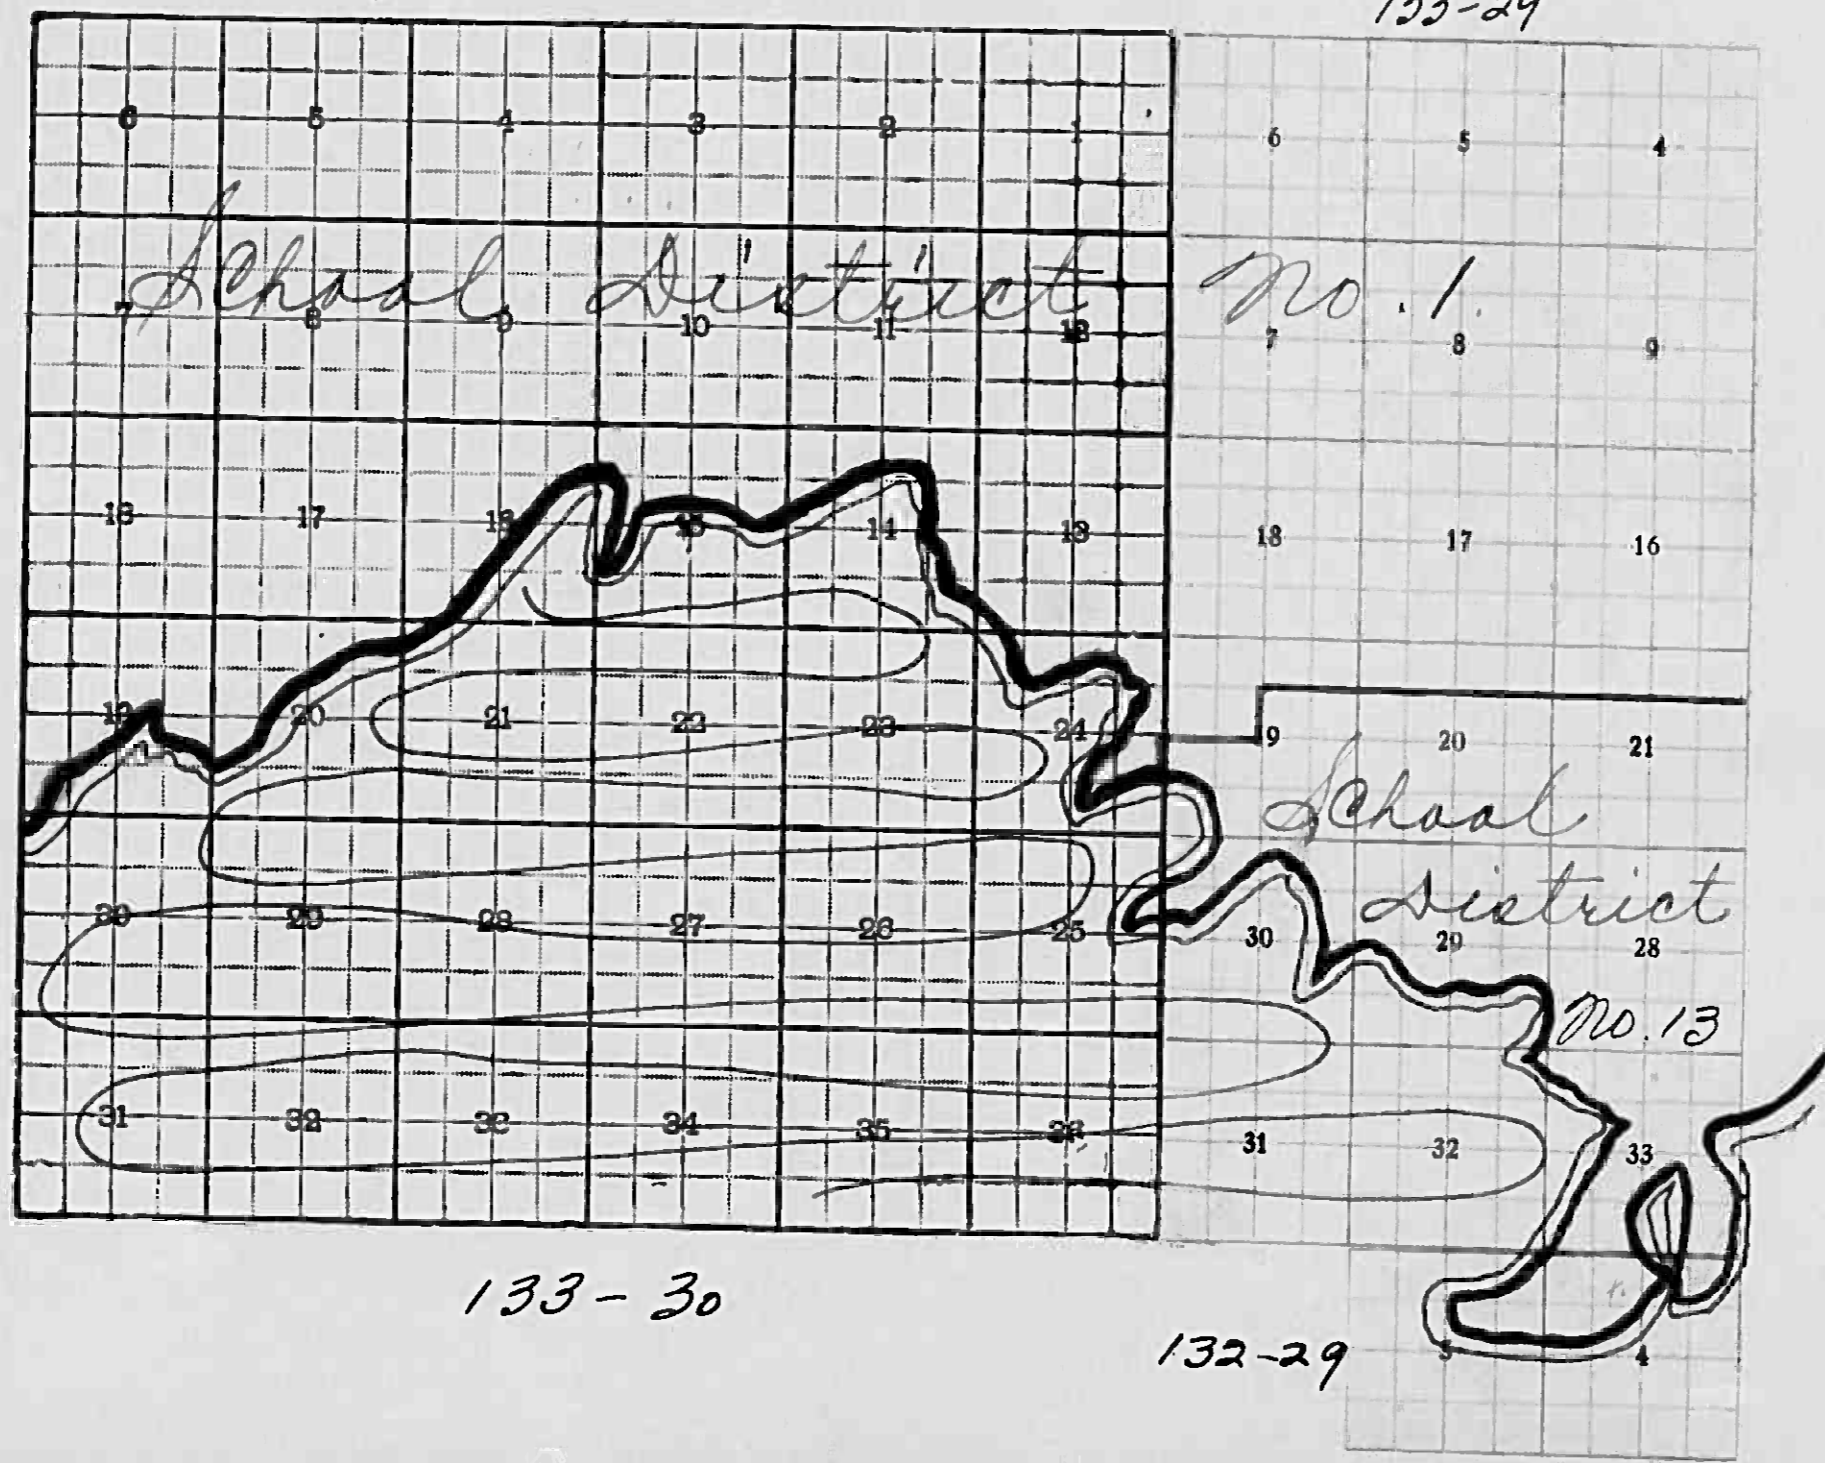 133-29
6 5 4 3 2 1 6 5 4
School District No. 1.
7 8 9 10 11 12 7 8 9
18 17 16 15 14 13 18 17 16
19 20 21 22 23 24 9 20 21
School
District
30 29 28 27 26 25 30 29 28
No. 13
31 32 33 34 35 36 31 32 33
133-30
132-29
5 4